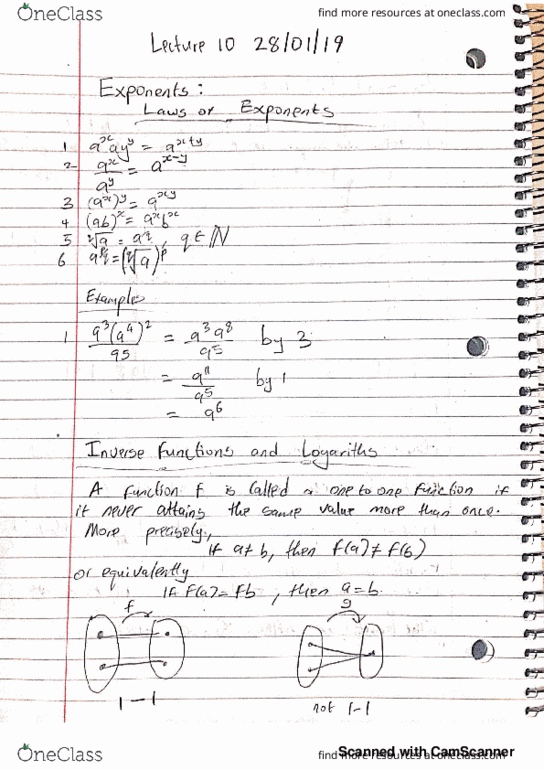 OneClass
find more resources at oneclass.com
Lecture 10 28/01/19
Exponents:
Laws of Exponents
1 aˣ ayʸ = aˣ⁺ʸ
2 aˣ/aʸ = aˣ⁻ʸ
3 (aˣ)ʸ = aˣʸ
4 (ab)ˣ = aˣbˣ
5 √a = a, q ∈ ℕ
6 a = (√a)ᵖ
Examples
1 a³(a⁴)²/a5 = a³a⁸/a⁵ by 3
= a¹¹/a⁵ by 1
= a⁶
Inverse Functions and Logariths
A function f is called a one to one function if
it never attains the same value more than once.
More precisely,
if a≠b, then f(a)≠f(b)
or equivalently
if f(a)=fb, then a=b.
f g
1-1
not 1-1
OneClass
find more resources at oneclass.com
Scanned with CamScanner